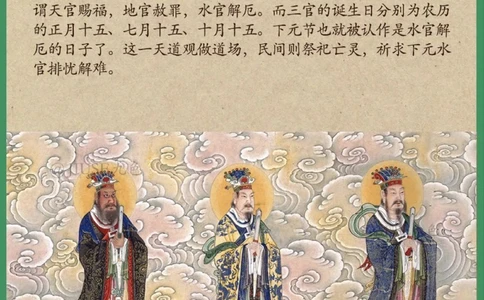 谓天官赐福，地官赦罪，水官解厄。而三官的诞生日分别为农历
的正月十五、七月十五、十月十五。下元节也就被认作是水官解
厄的日子了。这一天道观做道场，民间则祭祀亡灵，祈求下元水
官排忧解难。